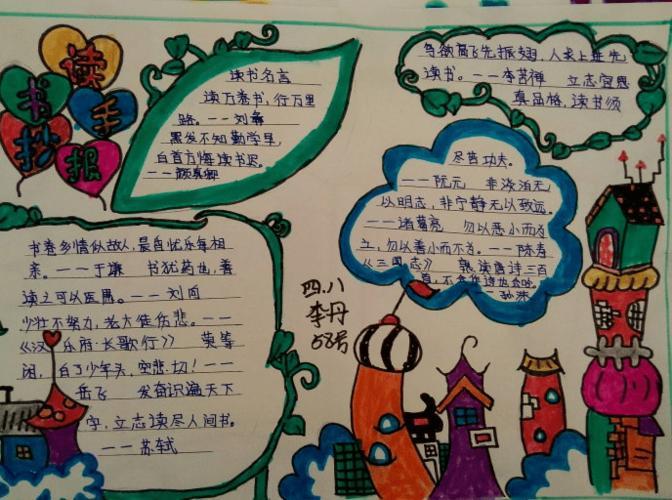 读书
手抄报
读书名言
读万卷书，行万里
路。——刘彝
黑发不知勤学早，
白首方悔读书迟。
——颜真卿
鸟欲高飞先振翅，人求上进先
读书。——李苦禅 立志宜思
真品格，读书须
尽苦功夫。
——阮元 非淡泊无
以明志，非宁静无以致远。
——诸葛亮 勿以恶小而为
之，勿以善小而不为。——陈寿
《三国志》 熟读唐诗三百
首，不会作诗也会吟。
——孙洙
书卷多情似故人，晨昏忧乐每相
亲。——于谦 书犹药也，善
读之可以医愚。——刘向
少壮不努力，老大徒伤悲。——
《汉乐府·长歌行》 莫等
闲，白了少年头，空悲切！——
岳飞 发奋识遍天下
字，立志读尽人间书。
——苏轼
四.八
李丹
58号